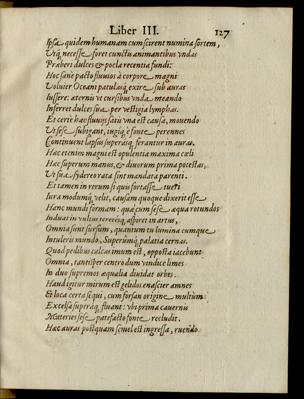 Liber III. 127
Ipsa quidem humanam cum scirent numina sortem,
Utq́; necesse foret cunctis animantibus vndas
Præberi dulces & pocla recentia fundi:
Hoc sanè pacto fluuios à corpore magni
Voluier Oceani patulasq́; exire sub auras
Iussere: aterni vt cursibus vnda meando
Inferret dulces sua per vestigia lymphas.
Et certè hac fluuijs satis vna est causa, mouendo
Vt sese subigant, iugiq́; è fonte perennes
Continuent lapsus superasq́; ferantur in auras.
Hac etenim magni est opulentia maxima cæli
Hac superum manos, & diuorum prima potestas,
Vt sua sydereo rata sint mandata parenti.
Et tamen in rerum si quis fortasse tueri
Iura modumq́; velit, causam quoque dixerit esse
Hanc mundi formam: quæ cum sese aqua rotundos
Induat in vultus teretesq́; assporiet in artus,
Omnia sunt sursum, quantum tu lumina cumque
Intuleris mundo, Superumq́; palatia cernas.
Quod pedibus calcas imum est, opposta iacebunt
Omnia, tantisper centro dum vindice limes
In duo supremos æqualia diuidat orbes.
Haud igitur mirum est gelidos enascier amnes
Et loca certa sequi, cum forsan origine multùm
Excelsa superáq; fluant: vbi prima cauernis
Materies sese patefacto fonte recludit.
Hac auras postquam semel est ingressa, ruendo